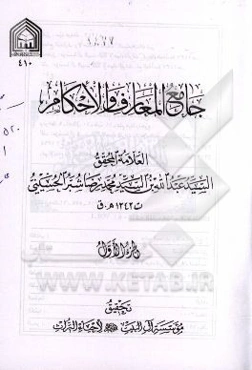 ٤١٠
جامع المعارف والأحكام
العلامة المحقق
السيد عبد الله بن السيد محمد رضا شبر الحسيني
ت ١٢٤٢ هـ . ق
الجزء الأول
تحقيق
مؤسسة آل البيت لإحياء التراث
WWW.KETAB.IR